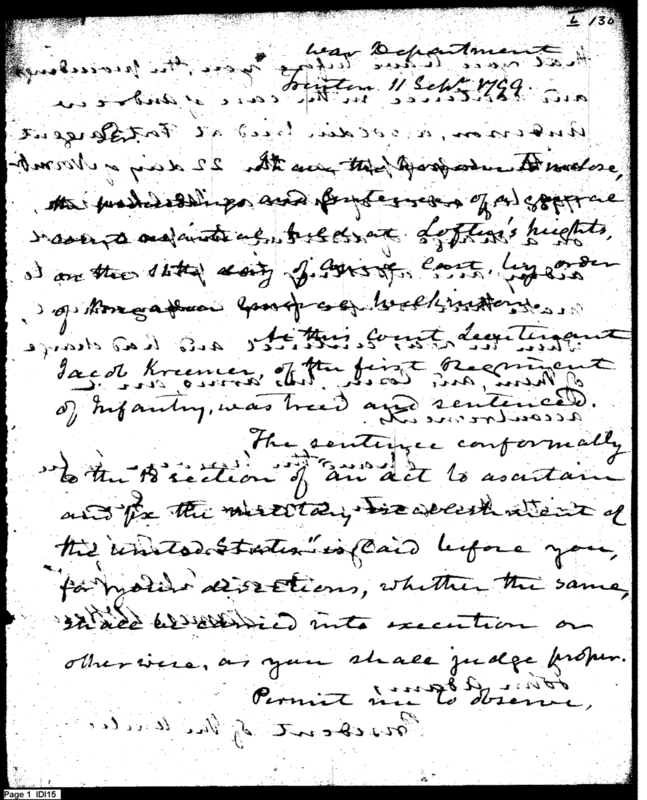 L 130
War Department
Trenton 11 Sept. 1799.
I have the to enclose,
the proceedings and sentence of a general
court martial held at Loftus's heights,
on the day of last by order
of Brigadier General Wilkinson.
At this Court Lieutenant
Jacob Kreemer, of the first Regiment
of Infantry, was tried and sentenced.
The sentence conformally
to the 18 section of "an act to asertain
and fix the military establishment of
the United States" is laid before you,
for your directions, whether the same,
shall be carried into execution or
otherwise, as you shall judge proper.
Permit me to observe,
Page 1 IDI15